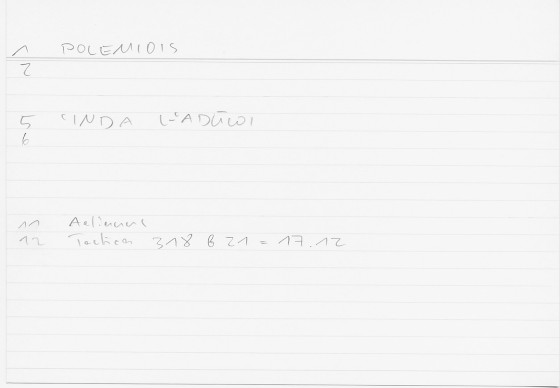 1 POLEMIOIS
2
5 ʿINDA L-ʾADŪWI
6
11 Aelianus
12 Tactica 318 B 21 = 17.12